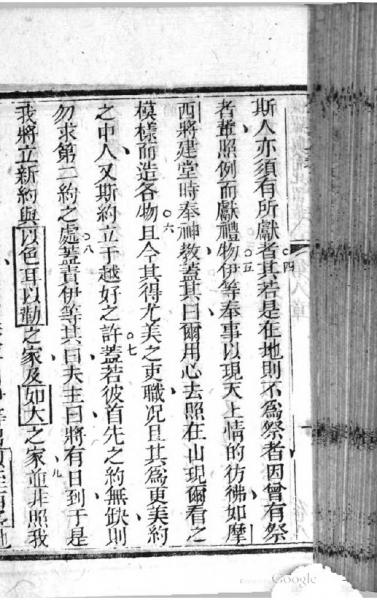 斯人亦須有所獻者其若是在地則不為祭者因曾有祭
者輩照例而獻禮物伊等奉事以現天上情的彷彿如摩
西將建堂時奉神教蓋其曰爾用心去照在山現爾看之
模樣而造各物且今其得尤美之吏職况且其為更美約
之中人又斯約立于越好之許蓋若彼首先之約無缺則
勿求第二約之處蓋責伊等其曰夫主曰將有日到于是
我將立新約與以色耳以勒之家及如大之家並非照我
四
五
六
七
八
九
Google